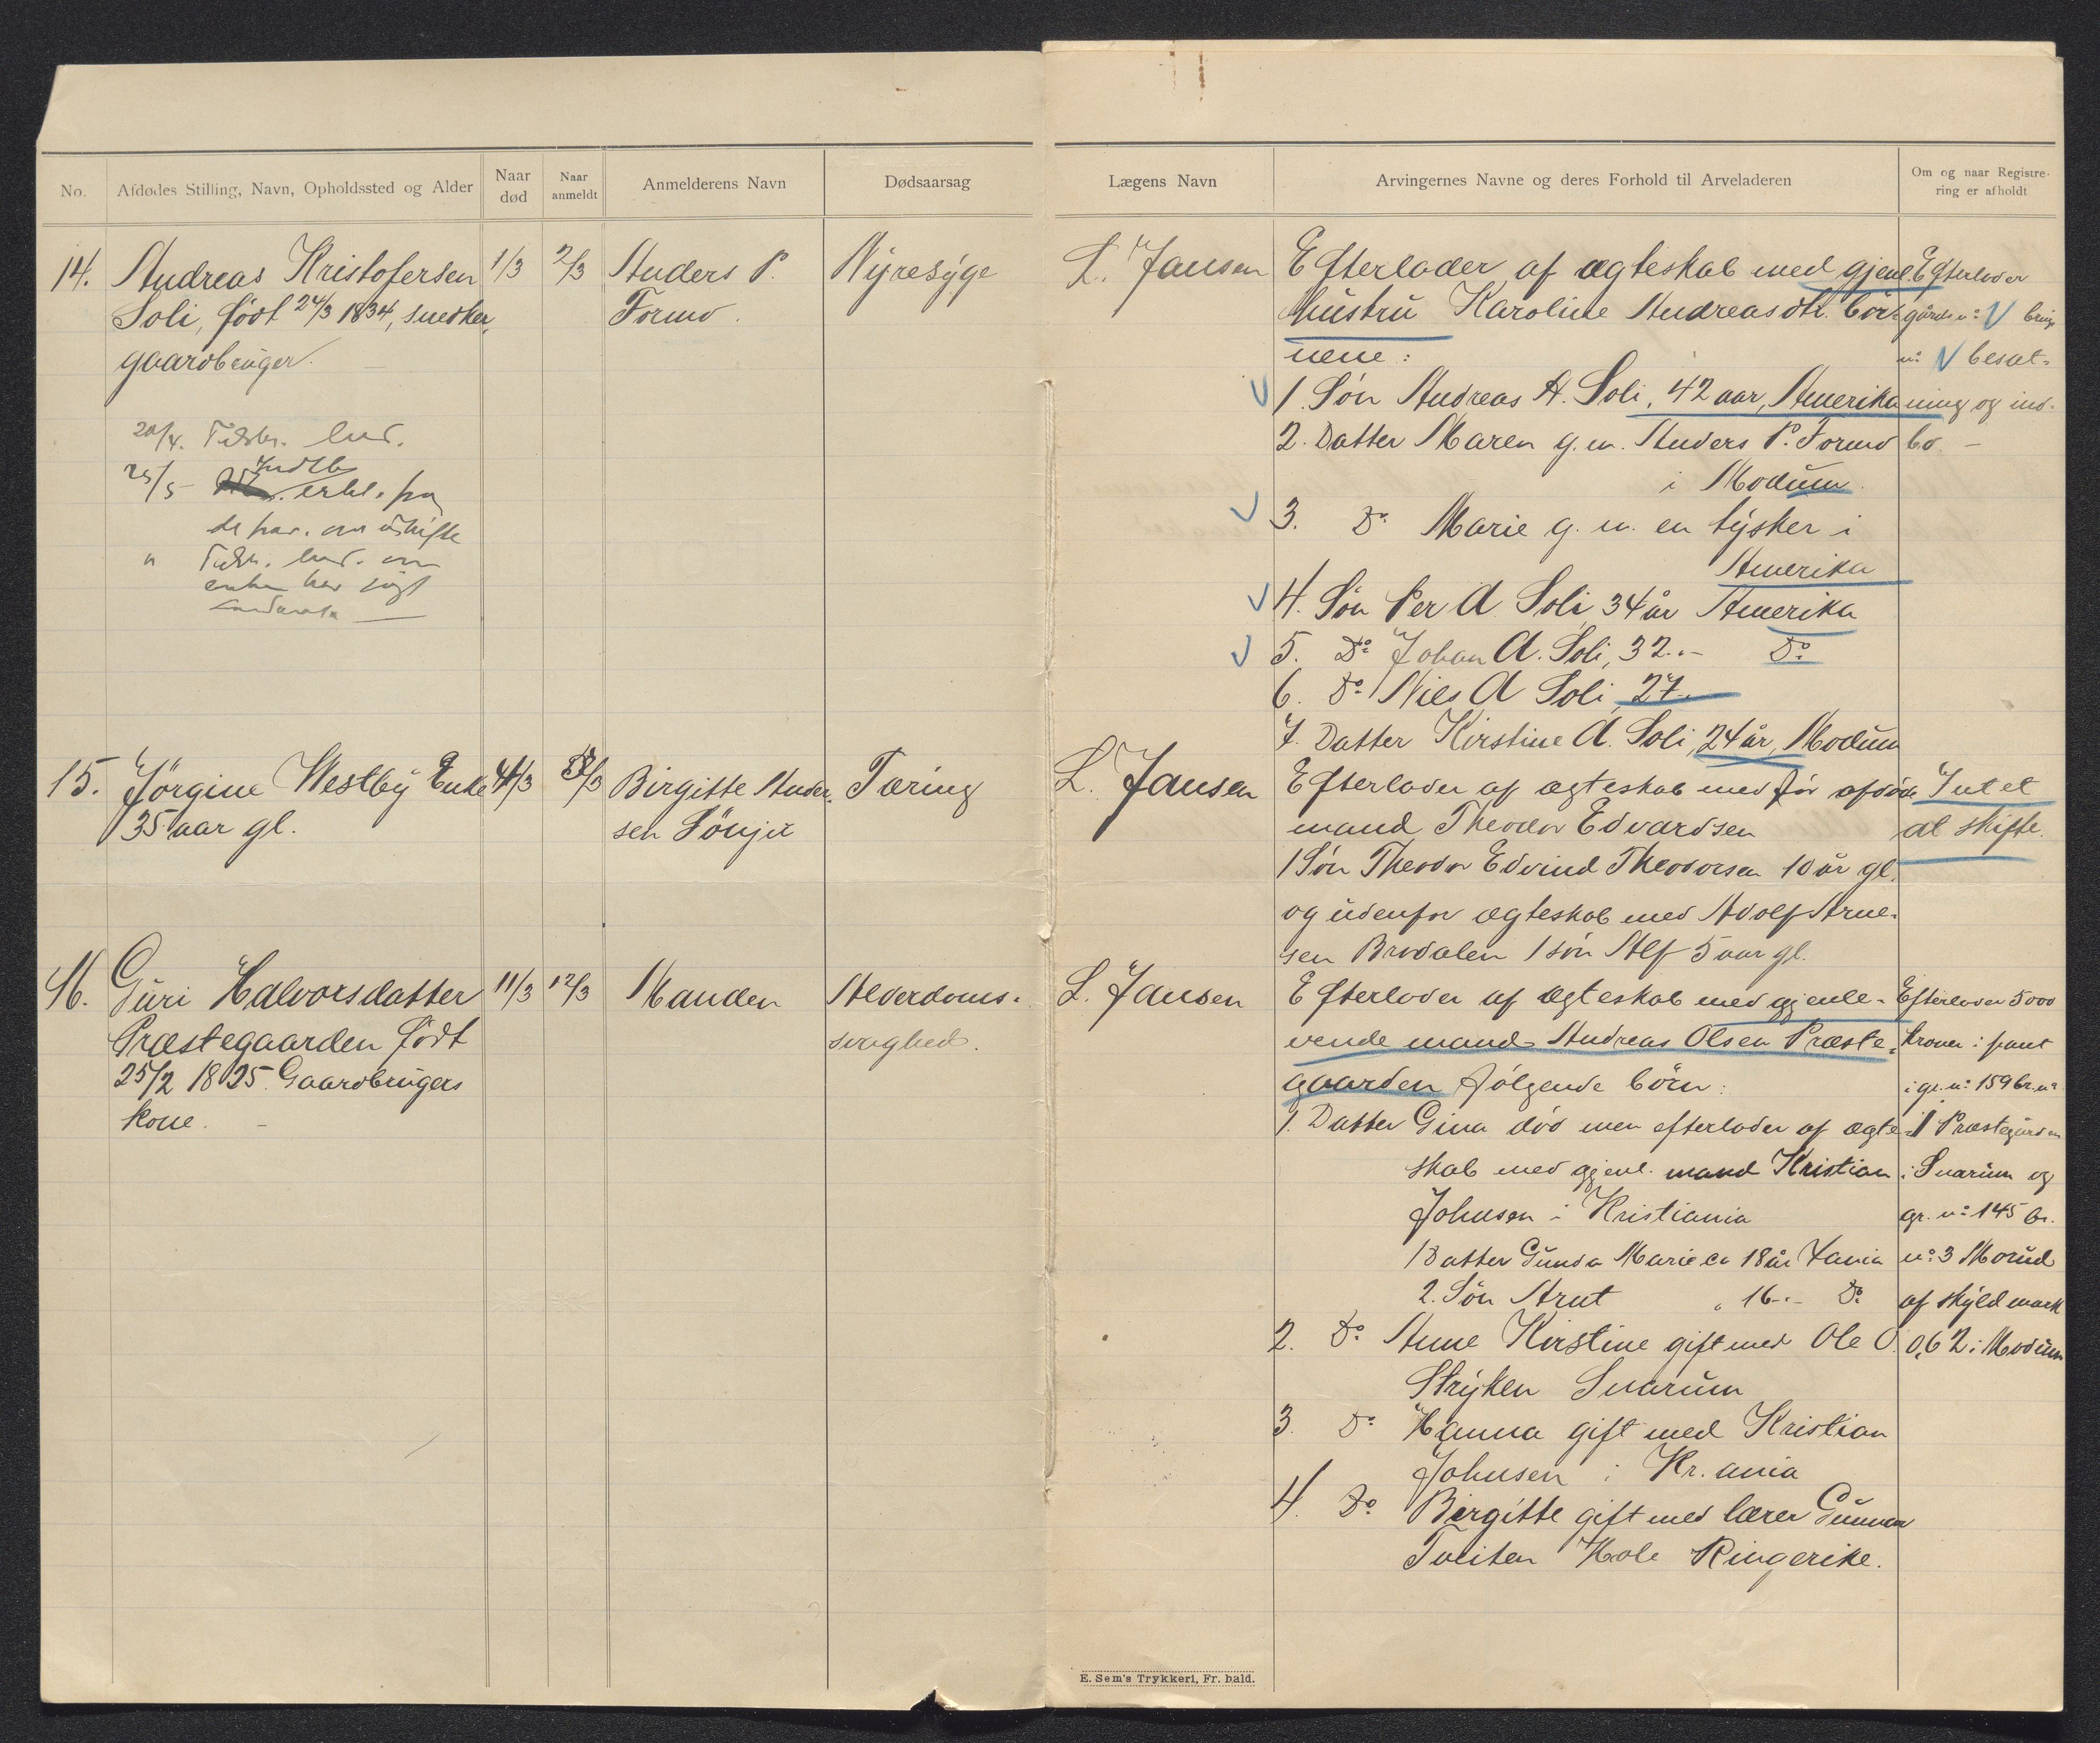 No.
Afdødes Stilling, Navn, Opholdssted og Alder
Naar død
Naar anmeldt
Anmelderens Navn
Dødsaarsag
Lægens Navn
Arvingernes Navne og deres Forhold til Arveladeren
Om og naar Registre-
ring er afholdt
14. Andreas Kristofersen 1/3 2/3 Anders P. Nyresyge
Soli, født 24/3 1834, snedker, Formo.
gaardbruger.
20/4. Tilskr. lensm.
25/5 erkl. fra
de har. om uskifte
" Tilskr. om
enken har
L. Jansen
Efterlader af ægteskab med gjenl.
hustru Karoline Andreasdtr. bør-
nene:
1. Søn Andreas A. Soli, 42 aar, Amerika
2. Datter Maren g.m. Anders P. Formo
i Modum.
3. Do Marie g.m. en tysker i
Amerika
4. Søn Per A Soli, 34 år Amerika
5. Do Johan A. Soli, 32 .- Do
6. Do Nils A Soli, 27.-
7. Datter Kirstine A. Soli, 24 år, Modum
Efterlader
gårds no: V brugs
no V besæt-
ning og ind-
bo. -
15. Jørgine Westby Enke 4/3 /3 Birgitte Ander- Tæring
35 aar gl. sen Sønju
L. Jansen
Efterlader af ægteskab med før afdøde
mand Theodor Edvardsen
1 Søn Theodor Edvind Theodorsen 10 år gl.
og udenfor ægteskab med Adolf Arne-
sen Brodalen 1 søn Alf 5 aar gl.
Intet
at skifte.
16. Guri Halvorsdatter 11/3 12/3 Manden Alderdoms-
Præstegaarden født svaghed.
25/2 1825. Gaardbrugers
kone. -
L. Jansen
Efterlader af ægteskab med gjenle-
vende mand Andreas Olsen Præste-
gaarden følgende børn:
1. Datter Gina død men efterlader af ægte-
skab med gjenl. mand Kristian
Johnsen i Kristiania
1 Datter Gunda Marie ca 18 år Xania
2. Søn Arut " 16 .- Do
2. Do Anne Kirstine gift med Ole O.
Stryken Snarum
3. Do Hanna gift med Kristian
Johnsen i Kr.ania
4. Do Birgitte gift med lærer Gunnar
Tveiten Hole Ringerike.
Efterlader 5000
kroner i pant
i gr. no 159 br. no
1 Præstegården
i Snarum og
gr. no 145 br.
no 3 Morud
af skyld mark
0,62 i Modum
E. Sem's Trykkeri, Fr.hald.